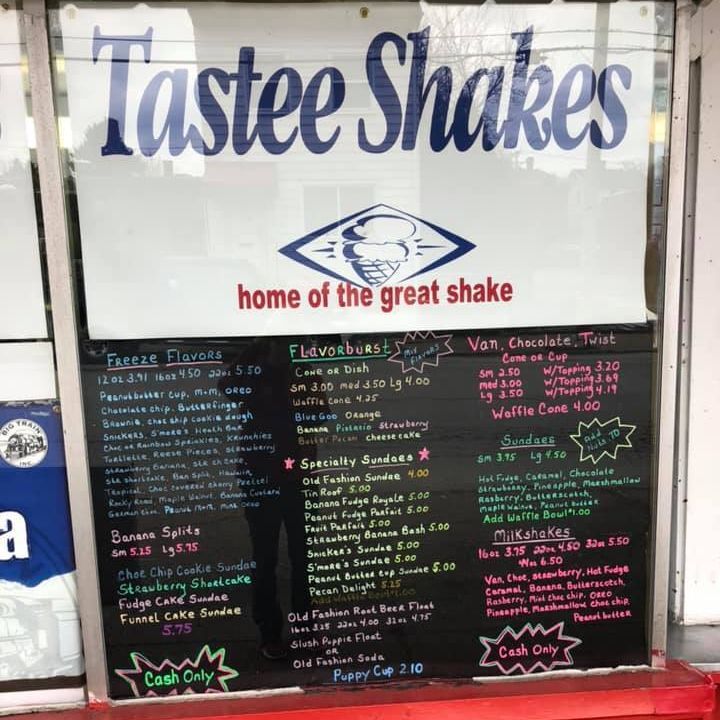 Tastee Shakes
home of the great shake
Freeze Flavors
12oz 3.91 16oz 4.50 22oz 5.50
Peanutbutter cup, M+M, Oreo
Chocolate chip, Butterfinger
Brownie, choc chip cookie dough
Snickers, S'more, Heath Bar
Choc or Rainbow Sprinkles, Krunchies
Turtlette, Reese Pieces, Strawberry
Strawberry Banana, Str ch cake
Str shortcake, Ban Split, Hawaiin
Tropical, Choc covered cherry Pretzel
Rocky Road, Maple Walnut, Banana Custard
German Choc, Peanut M+M, Mint Oreo
Banana Splits
Sm 5.25 Lg 5.75
Choc Chip Cookie Sundae
Strawberry Shortcake
Fudge Cake Sundae
Funnel Cake Sundae
5.75
Cash Only
Flavorburst
Mix Flavors
Cone or Dish
Sm 3.00 med 3.50 Lg 4.00
Waffle Cone 4.25
Blue Goo Orange
Banana Pistacio Strawberry
Butter Pecan cheesecake
Specialty Sundaes
Old Fashion Sundae 4.00
Tin Roof 5.00
Banana Fudge Royale 5.00
Peanut Fudge Parfait 5.00
Fruit Parfait 5.00
Strawberry Banana Bash 5.00
Snicker's Sundae 5.00
S'more's Sundae 5.00
Peanut Butter cup Sundae 5.00
Pecan Delight 5.25
Add Waffle Bowl 1.00
Old Fashion Root Beer Float
16oz 3.25 22oz 4.00 32oz 4.75
Slush Puppie Float
OR
Old Fashion Soda
Puppy Cup 2.10
Van, Chocolate, Twist
Cone or Cup
Sm 2.50 W/Topping 3.20
Med 3.00 W/Topping 3.69
Lg 3.50 W/Topping 4.19
Waffle Cone 4.00
Sundaes
Add Nuts .70
Sm 3.75 Lg 4.50
Hot Fudge, Caramel, Chocolate
Strawberry, Pineapple, Marshmallow
Rasberry, Butterscotch,
Maple Walnut, Peanut Butter
Add Waffle Bowl 1.00
Milkshakes
16oz 3.75 22oz 4.50 32oz 5.50
Van, Choc, Strawberry, Hot Fudge
Caramel, Banana, Butterscotch,
Rasberry, Mint choc chip, Oreo
Pineapple, Marshmallow choc chip,
Peanut butter
Cash Only
BIG TRAIN
INC
a